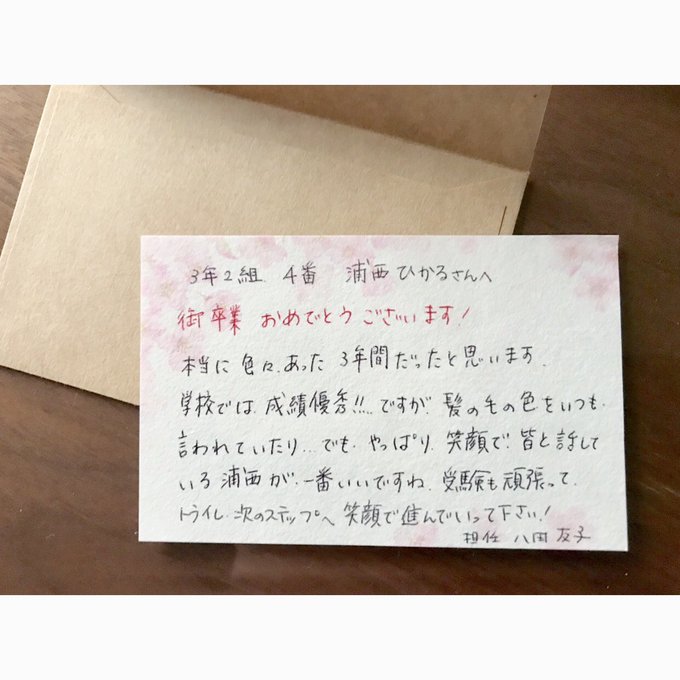 3年2組 4番 浦西ひかるさんへ
御卒業 おめでとうございます!
本当に色々あった3年間だったと思います.
学校では成績優秀!!…ですが、髪のその色をいつも
言われていたり…でも やっぱり 笑顔で皆と話して
いる浦西が一番いいですね. 受験も頑張って
トライし 次のステップへ 笑顔で進んでいって下さい!
担任 八田 友子